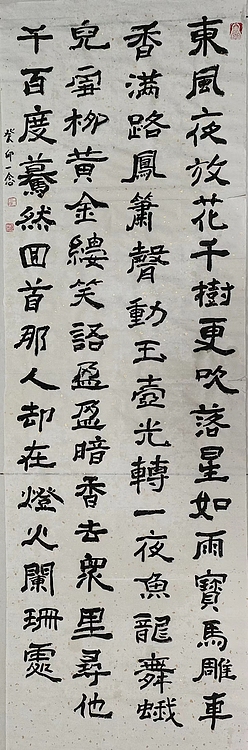 東風夜放花千樹更吹落星如雨寶馬雕車
香滿路鳳簫聲動玉壺光轉一夜魚龍舞蛾
兒雪柳黃金縷笑語盈盈暗香去衆里尋他
千百度驀然回首那人却在燈火闌珊處
癸卯一念